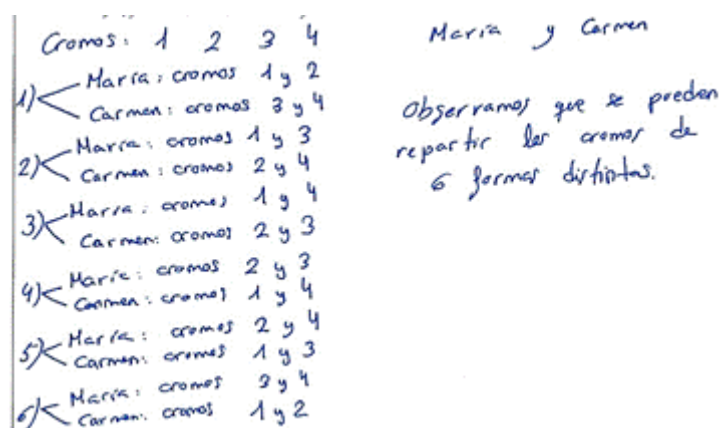 Cromos: 1 2 3 4
1) María: cromos 1 y 2
Carmen: cromos 3 y 4
2) María: cromos 1 y 3
Carmen: cromos 2 y 4
3) María: cromos 1 y 4
Carmen: cromos 2 y 3
4) María: cromos 2 y 3
Carmen: cromos 1 y 4
5) María: cromos 2 y 4
Carmen: cromos 1 y 3
6) María: cromos 3 y 4
Carmen: cromos 1 y 2
María y Carmen
Observamos que se pueden
repartir los cromos de
6 formas distintas.